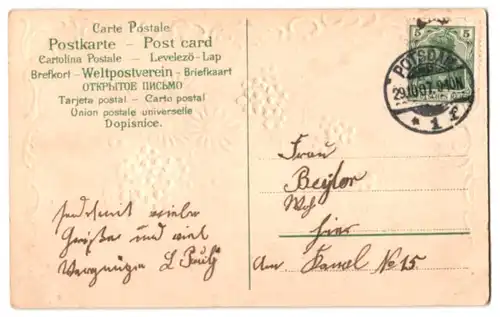 Carte Postale
Postkarte – Post card
Cartolina Postale – Levelező-Lap
Brefkort – Weltpostverein – Briefkaart
ОТКРЫТОЕ ПИСЬМО
Tarjeta postal – Carto postal
Union postale universelle
Dopisnice.
5 5
POTSDAM
29.10.07. 9-10N
* 1 f.
Frau
Beyler
hier
Am Kanal No 15.
viele
Grüße und viel
Vergnügen